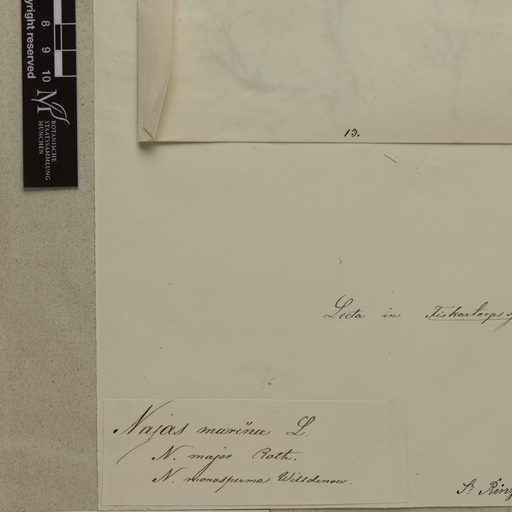 yright reserved
8 9 10
BOTANISCHE
STAATSSAMMLUNG
MÜNCHEN
13.
Lecta in
Najas marina L.
N. major Roth.
N. monosperma Willdenow.